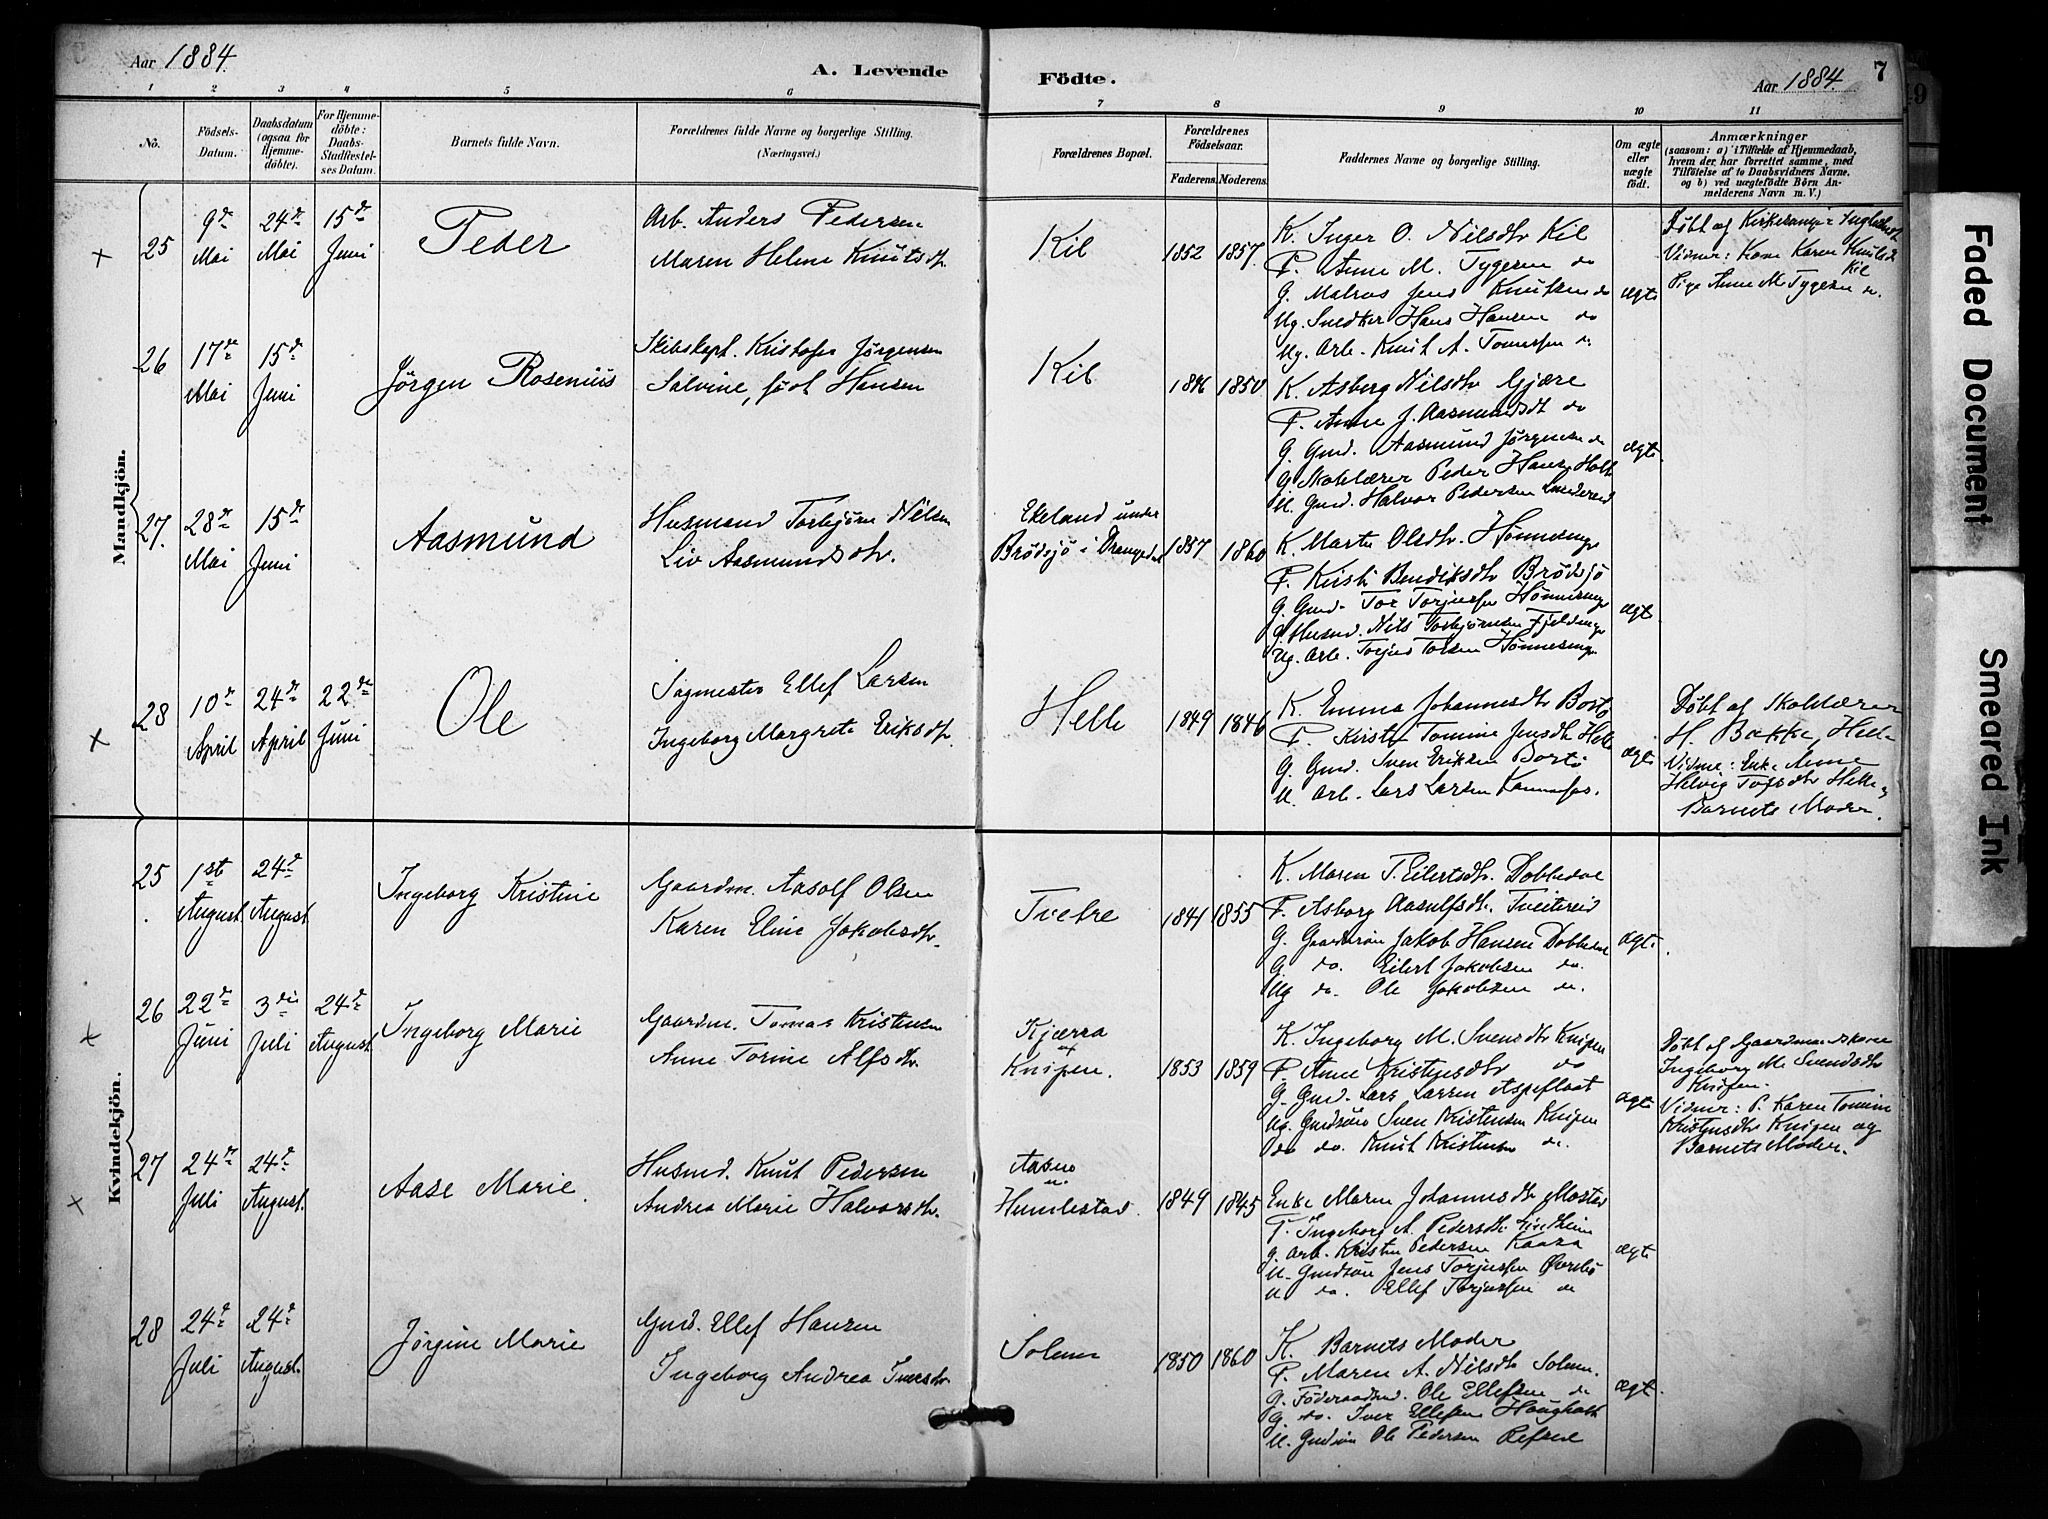 Aar 1884.
A. Levende
Födte.
Aar 1884.
7
1 2 3 4 5 6 7 8 9 10 11
No.
Födsels-Datum.
Daabsdatum (ogsaa for Hjemmedöbte).
For Hjemmedöbte: Daabs-Stadfæstelses Datum.
Barnets fulde Navn.
Forældrenes fulde Navne og borgerlige Stilling. (Næringsvei.)
Forældrenes Bopæl.
Forældrenes Födselsaar.
Faderens. Moderens.
Faddernes Navne og borgerlige Stilling.
Om ægte eller uægte födt.
Anmærkninger
(saasom: a) i Tilfælde af Hjemmedaab, hvem der har forrettet samme, med Tilföielse af to Daabsvidners Navne, og b) ved uægtefödte Börn Anmelderens Navn m. V.)
Mandkjön.
25 9de Mai 24de Mai 15de Juni
Peder
Arb. Anders Pedersen
Maren Helene Knutsdr.
Kil 1852 1857
K. Inger O. Nilsdtr Kil
P. Anne M. Tygesen do
G. Matros Jens Knutsen do
Ug. Snedker Hans Hansen do
Ug. Arb. Knut A. Tomassen do
ægte
Døbt af Kirkesanger
Vidner: Kone Karen Knutsd
Kil
Pige Anne M Tygesen
26 17de Mai 15de Juni
Jörgen Rosenius
Skibskapt. Kristofer Jørgensen
Salvine, født Hansen
Kil 1846 1850
K. Asberg Nilsdtr Gjære
P. Anne J. Aasmundsdt do
G. Gmd. Aasmund Jörgensen do
G Skolelærer Peder Hansen Holt
U. Gmd. Halvor Pedersen
ægte
27. 28de Mai 15de Juni
Aasmund
Husmand Torbjörn Nilsen
Liv Aasmundsdtr.
Ekeland under
Brödsjö i Drangedal 1857 1860
K. Marte Olsdtr.
P. Kirsti Bendiksdtr Brödsjö
G. Gmd. Tor Torjussen
G. Husmd. Nils Torbjörnsen
Ug. Arb. Torjus Torsen
ægte
28 10de April 24de April 22de Juni
Ole
Sagmester Ellef Larsen
Ingeborg Margrete Eriksdtr.
Helle 1849 1846
K. Emma Johannesdtr Bostö
P. Kirsten Tomine Jensdtr Helle
G. Gmd. Sven Eriksen Bostö
U. Arb. Lars Larsen
ægte
Døbt af Skolelærer
H. Bakke, Helle
Vidner: Enke Anne
Helvig Tofsdtr Helle og
Barnets Moder.
Kvindekjön.
25 1ste August 24de August
Ingeborg Kristine
Gaardm. Aasolf Olsen
Karen Eline Jakobsdtr.
Tvetre 1841 1855
K. Maren T. Eilertsdtr. Dobbedal
P. Asborg Aasulfsdtr. Tveitereid
G. Gaardsøn Jakob Hansen Dobbedal
G. do. Eilert Jakobsen do.
Ug do. Ole Jakobsen do.
ægte
26 22de Juni 3die Juli 24de August
Ingeborg Marie
Gaardm. Tomas Kristensen
Anne Torine Alfsdtr.
Kjærra
af
Knipen. 1853 1859
K. Ingeborg M. Svensdtr Knipen
P. Anne Kristensdtr do
G. Gmd. Lars Larsen Aspeflaat
Ug. Gmdsøn Sven Kristensen Knipen
do do. Knut Kristensen do.
ægte
Døbt af Gaardmandskone
Ingeborg M. Svendsdtr
Knipen.
Vidner: P. Karen Tomine
Kristensdtr Knipen og
Barnets Moder.
27 24de Juli 24de August.
Aase Marie.
Husmd. Knut Pedersen
Andrea Marie Halvorsdtr.
Aasen
u.
Humlestad. 1849 1845
Enke Maren Johannesdtr Mostad
P. Ingeborg A. Pedersdtr. Lindheim
G. Arb. Kristen Pedersen Kaasa
U. Gmdsøn Jens Torjussen
U do. Ellef Torjussen do
ægte
28 24de Juli 24de August.
Jörgine Marie
Gmd. Ellef Hansen
Ingeborg Andrea Iversdtr.
Solem 1850 1860
K. Barnets Moder
P. Maren A. Nilsdtr Solem.
G. Föderaadsmd. Ole Ellefsen do
G. do. Iver Ellefsen Haugholt
U. Gmdsøn Ole Pedersen Refsal
ægte.
Faded Document
Smeared Ink